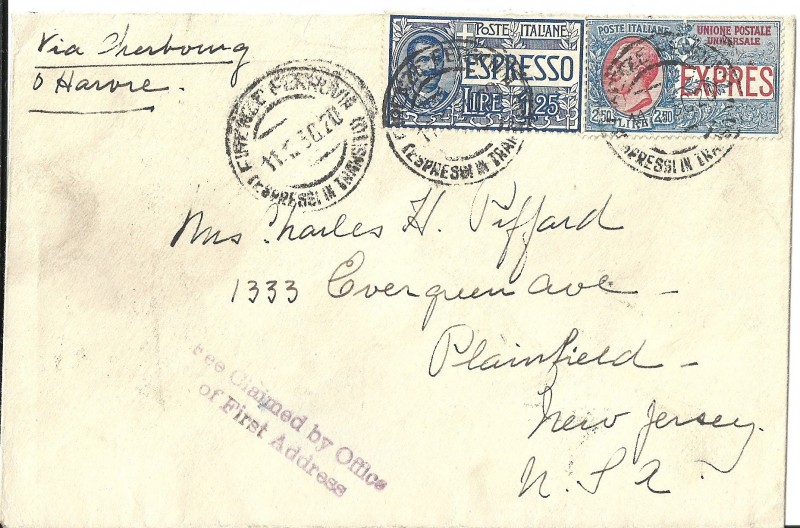 Via Cherbourg
o Havre.
POSTE ITALIANE
ESPRESSO
LIRE 1,25
POSTE ITALIANE
UNIONE POSTALE
UNIVERSALE
EXPRES
2,50 LIRE 2,50
FIRENZE FERROVIA
11. 30.20
(ESPRESSI IN TRANSITO)
Mrs Charles H. Piffard
1333 Evergreen Ave –
Plainfield –
New Jersey.
U.S.A.
Fee Claimed by Office
of First Address